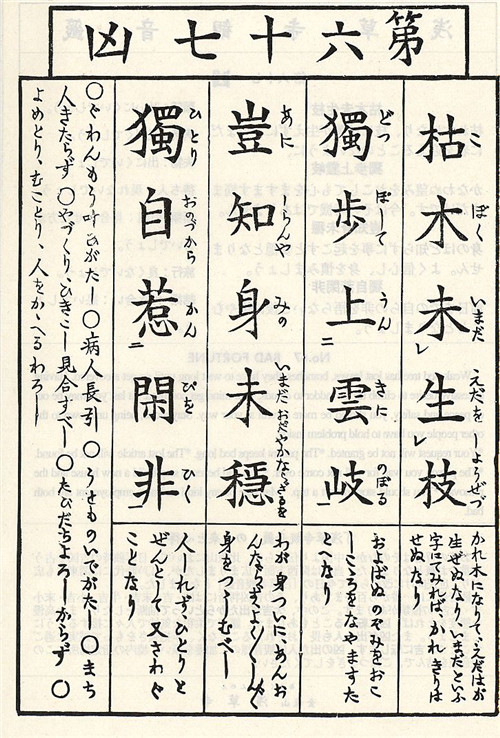 第六十七凶
枯木未生枝
こぼく いまだ えだをしやうぜず
かれ木になりて、えだはが
生ぜぬなり、いまだといふ
字にてみれば、かれきりは
せぬなり
獨歩上雲岐
どつ ぽして うん きに のぼる
およばぬのぞみをおこ
しこゝろをなやますた
とへなり
豈知身未穏
あに しらんや みの いまだおだやかならざるを
わが身いまだあんお
んならずよく〳〵
身をつゝしむべし
獨自惹閑非
ひとり おのづから かん ぴを ひく
ひとりと
ぜんとして又さわぐ
ことなり
○ぐわんもう叶ひがたし○病人長引○うせものいでがたし○まち
人きたらず○やづくりひきこし見合すべし○たびだちよろしからず○
よめとり、むことり、人をかゝへるわろし